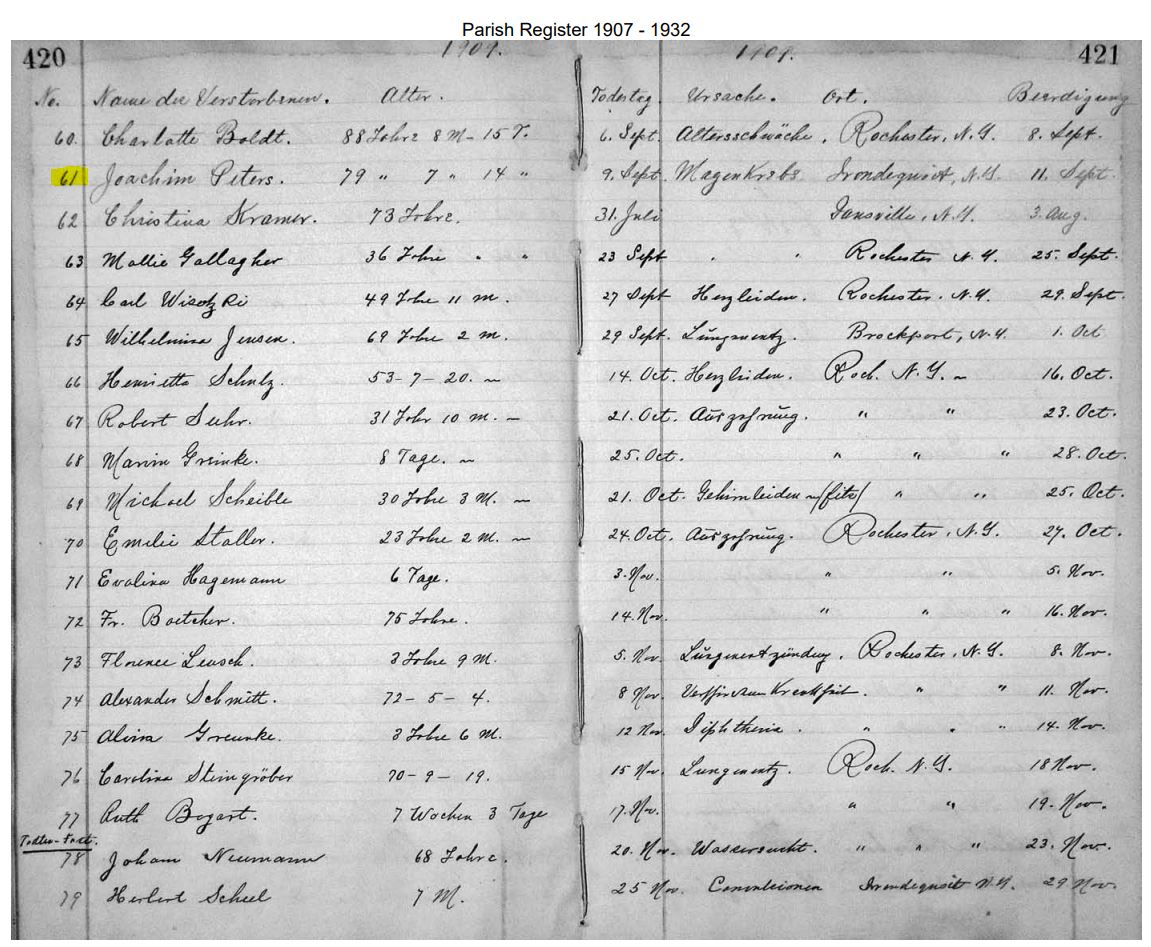 Parish Register 1907 - 1932
420 1909. 1909. 421
No. Name der Verstorbenen. Alter. Todestag. Ursache. Ort. Beerdigung
60. Charlotte Boldt. 88 Jahre 8 M - 15 T. 6. Sept. Altersschwäche, Rochester, N.Y. 8. Sept.
61 Joachim Peters. 79 " 7 " 14 " 9. Sept. Magenkrebs Irondequoit, N.Y. 11. Sept.
62 Christina Kramer. 73 Jahre. 31. Juli Dansville, N.Y. 3. Aug.
63 Mollie Gallagher 36 Jahre " " 23 Sept " " Rochester N.Y. 25. Sept.
64 Carl Wisotzki 49 Jahre 11 m. 27 Sept Herzleiden. Rochester. N.Y. 29. Sept.
65 Wilhelmina Jensen. 69 Jahre 2 m. 29 Sept. Lungenentz. Brockport, N.Y. 1. Oct
66 Henrietta Schulz. 53 - 7 - 20. ~ 14. Oct. Herzleiden. Roch. N.Y. ~ 16. Oct.
67 Robert Suhr. 31 Jahr 10 m. - 21. Oct. Auszehrung. " " 23. Oct.
68 Marim Greinke. 8 Tage. ~ 25. Oct. " " " 28. Oct.
69 Michael Scheible 30 Jahre 3 M. ~ 21. Oct. Gehirnleiden ~ /fits/ " " 25. Oct.
70 Emilie Staller. 23 Jahre 2 M. ~ 24. Oct. Auszehrung. Rochester, N.Y. 27. Oct.
71 Evalina Hagemann 6 Tage. 3. Nov. " " 5. Nov.
72 Fr. Boetcher. 75 Jahre. 14. Nov. " " " 16. Nov.
73 Florence Leusch. 3 Jahre 9 M. 5. Nov. Lungenentzündung. Rochester, N.Y. 8. Nov.
74 Alexander Schmitt. 72 - 5 - 4. 8 Nov. " " 11. Nov.
75 Alvina Greunke. 3 Jahre 6 M. 12 Nov. Diphtheria. " " " 14. Nov.
76 Carolina Steingröber 70 - 9 - 19. 15 Nov. Lungenentz. Roch. N.Y. 18 Nov.
77 Ruth Bogart. 7 Wochen 3 Tage 17. Nov. " " 19. Nov.
78 Johann Neumann 68 Jahre. 20. Nov. Wassersucht. " " " 23. Nov.
79 Herbert Scheel 7 M. 25 Nov. Irondequoit N.Y. 29 Nov.